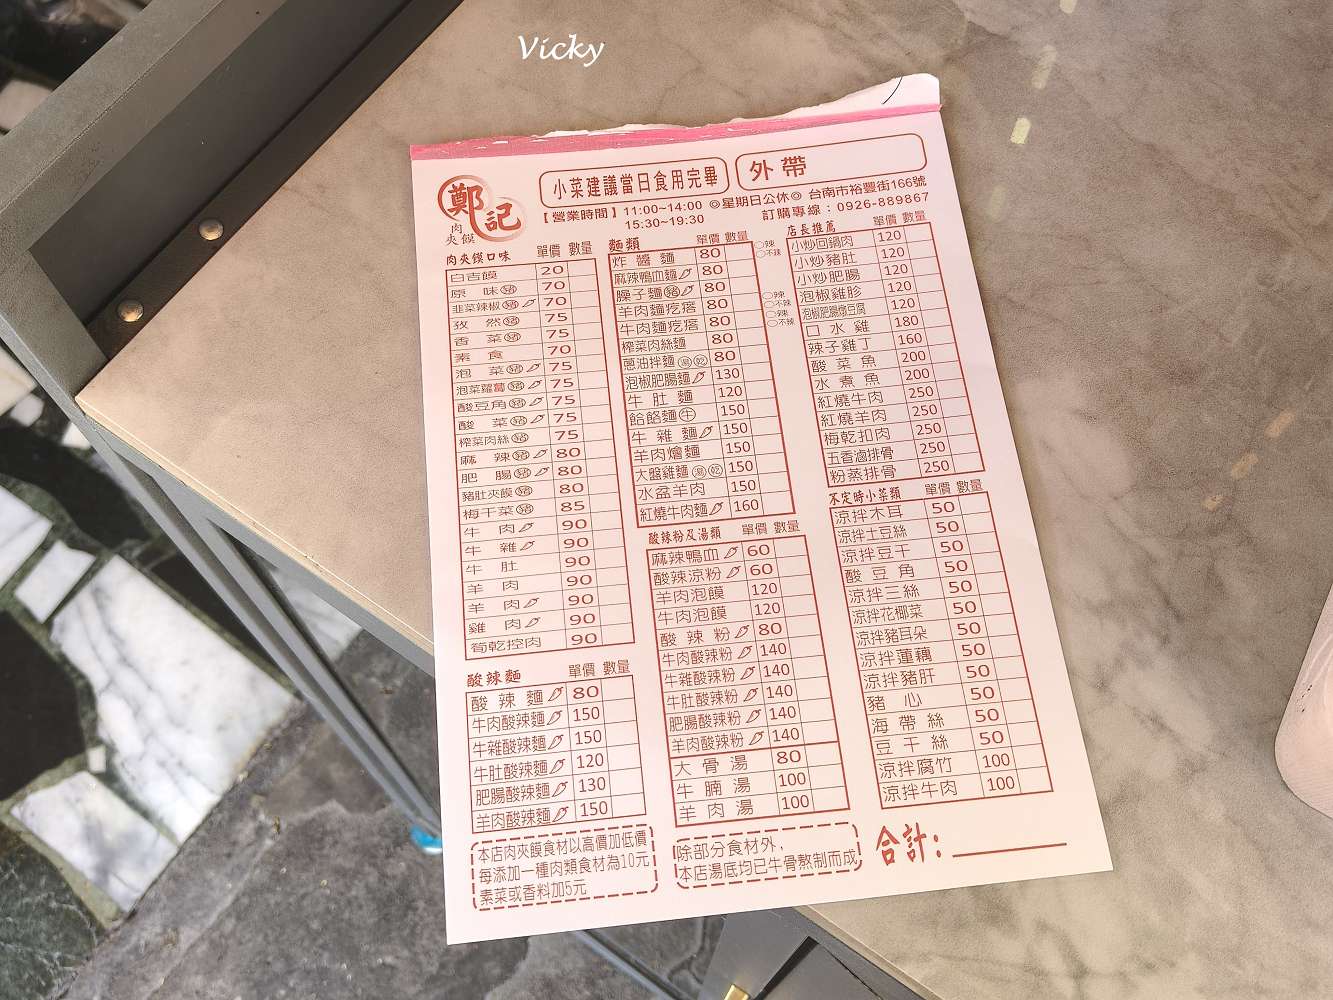 Vicky
鄭記
肉夾饃
小菜建議當日食用完畢
外帶
【營業時間】11:00~14:00 ◎星期日公休◎ 台南市裕豐街166號
15:30~19:30 訂購專線：0926-889867
肉夾饃口味 單價 數量
白吉饃 20
原味 豬 70
韭菜辣椒 豬 70
孜然 豬 75
香菜 豬 75
素食 70
泡菜 豬 75
泡菜蘿蔔 豬 75
酸豆角 豬 75
酸菜 豬 75
榨菜肉絲 豬 75
麻辣 豬 80
肥腸 豬 80
豬肚夾饃 豬 80
梅干菜 豬 85
牛肉 90
牛雜 90
牛肚 90
羊肉 90
羊肉 90
雞肉 90
筍乾控肉 90
酸辣麵 單價 數量
酸辣麵 80
牛肉酸辣麵 150
牛雜酸辣麵 150
牛肚酸辣麵 120
肥腸酸辣麵 130
羊肉酸辣麵 150
本店肉夾饃食材以高價加低價
每添加一種肉類食材為10元
素菜或香料加5元
麵類 單價 數量
炸醬麵 80 ○辣 ○不辣
麻辣鴨血麵 80
臊子麵 豬 80
羊肉麵疙瘩 80 ○辣 ○不辣
牛肉麵疙瘩 80 ○辣 ○不辣
榨菜肉絲麵 80
蔥油拌麵 湯 乾 80
泡椒肥腸麵 130
牛肚麵 120
餄餎麵 牛 150
牛雜麵 150
羊肉燴麵 150
大盤雞麵 湯 乾 150
水盆羊肉 150
紅燒牛肉麵 160
酸辣粉及湯類 單價 數量
麻辣鴨血 60
酸辣涼粉 60
羊肉泡饃 120
牛肉泡饃 120
酸辣粉 80
牛肉酸辣粉 140
牛雜酸辣粉 140
牛肚酸辣粉 140
肥腸酸辣粉 140
羊肉酸辣粉 140
大骨湯 80
牛腩湯 100
羊肉湯 100
除部分食材外，
本店湯底均已牛骨熬制而成
店長推薦 單價 數量
小炒回鍋肉 120
小炒豬肚 120
小炒肥腸 120
泡椒雞胗 120
泡椒肥腸燉豆腐 120
口水雞 180
辣子雞丁 160
酸菜魚 200
水煮魚 200
紅燒牛肉 250
紅燒羊肉 250
梅乾扣肉 250
五香滷排骨 250
粉蒸排骨 250
不定時小菜類 單價 數量
涼拌木耳 50
涼拌土豆絲 50
涼拌豆干 50
酸豆角 50
涼拌三絲 50
涼拌花椰菜 50
涼拌豬耳朵 50
涼拌蓮藕 50
涼拌豬肝 50
豬心 50
海帶絲 50
豆干絲 50
涼拌腐竹 100
涼拌牛肉 100
合計：